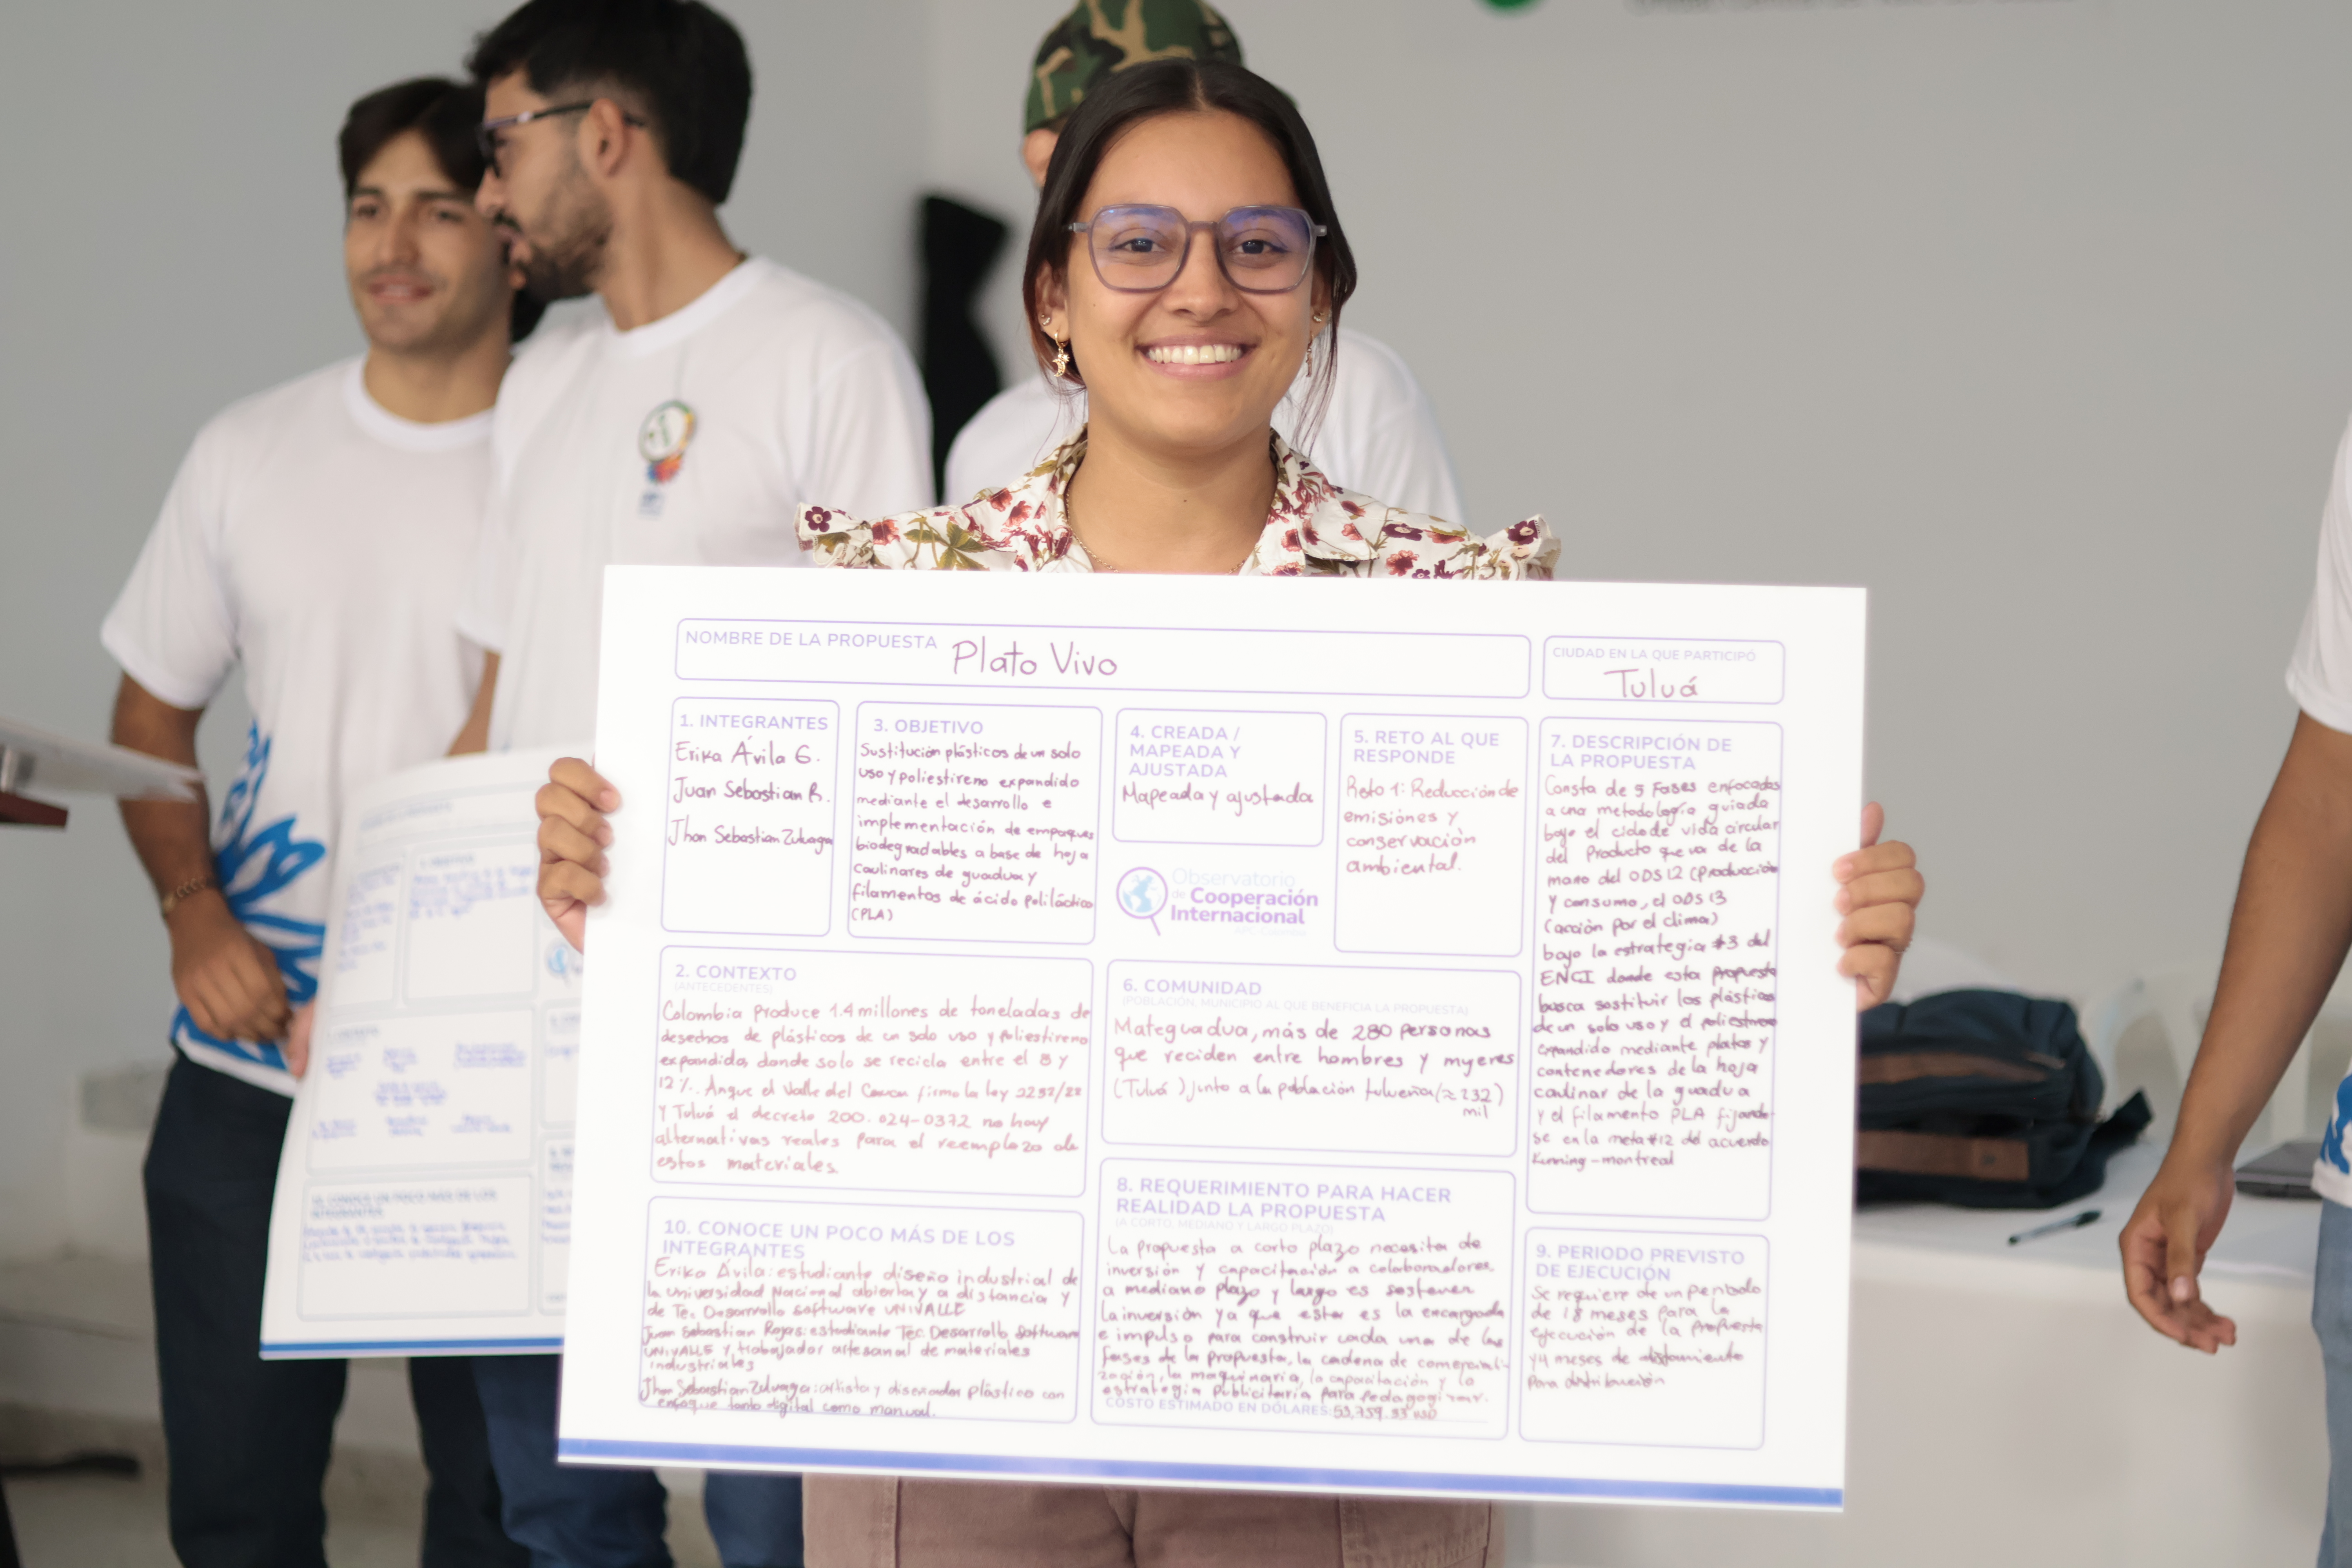 NOMBRE DE LA PROPUESTA Plato Vivo
CIUDAD EN LA QUE PARTICIPÓ
Tuluá
1. INTEGRANTES
Erika Ávila G.
Juan Sebastian R.
Jhon Sebastian Zuluaga
3. OBJETIVO
Sustitución plásticos de un solo
uso y poliestireno expandido
mediante el desarrollo e
implementación de empaques
biodegradables a base de hoja
caulinares de guadua y
filamentos de ácido poliláctico
(PLA)
4. CREADA /
MAPEADA Y
AJUSTADA
Mapeada y ajustada
Observatorio
de Cooperación
Internacional
5. RETO AL QUE
RESPONDE
Reto 1: Reducción de
emisiónes y
conservación
ambiental.
7. DESCRIPCIÓN DE
LA PROPUESTA
Consta de 5 Fases enfocadas
a una metodología guiada
bajo el ciclo de vida circular
del Producto que va de la
mano del ODS 12 (Producción
y consumo, el ODS 13
(acción por el clima)
bajo la estrategia #3 del
ENCI donde esta propuesta
busca sostituir los plásticos
de un solo uso y el poliestireno
expandido mediante platos y
contenedores de la hoja
caulinar de la guadua
y el filamento PLA fijando-
se en la meta #12 del acuerdo
Kunning-montreal
2. CONTEXTO
(ANTECEDENTES)
Colombia produce 1.4 millones de toneladas de
desechos de plásticos de un solo uso y poliestireno
expandido, donde solo se recicla entre el 8 y
12%. Anque el Valle del Cauca firmo la ley 2232/22
y Tuluá el decreto 200.024-0372 no hay
alternativas reales para el reemplazo de
estos materiales.
6. COMUNIDAD
(POBLACIÓN, MUNICIPIO AL QUE BENEFICIA LA PROPUESTA)
Mateguadua, más de 280 personas
que reciden entre hombres y mujeres
(Tuluá) junto a la población tulueña (≈232)
mil
8. REQUERIMIENTO PARA HACER
REALIDAD LA PROPUESTA
(A CORTO, MEDIANO Y LARGO PLAZO)
La propuesta a corto plazo necesita de
inversión y capacitación a colaboradores.
a mediano plazo y largo es sostener
la inversión ya que esta es la encargada
e impulso para construir cada una de las
fases de la propuesta, la cadena de comerciali-
zación, la maquinaria, la capacitación y la
estrategia publicitaria para pedagogizar.
COSTO ESTIMADO EN DÓLARES:
9. PERIODO PREVISTO
DE EJECUCIÓN
Se requiere de un periodo
de 18 meses para la
ejecución de la propuesta
y 4 meses de
para distribución
10. CONOCE UN POCO MÁS DE LOS
INTEGRANTES
Erika Ávila: estudiante diseño industrial de
la Universidad Nacional abierta y a distancia y
de Tec. Desarrollo software UNIVALLE
Juan Sebastian Rojas: estudiante Téc. Desarrollo Software
UNIVALLE y trabajador artesanal de materiales
industriales
Jhon Sebastian Zuluaga: artista y diseñador plástico con
enfoque tanto digital como manual.